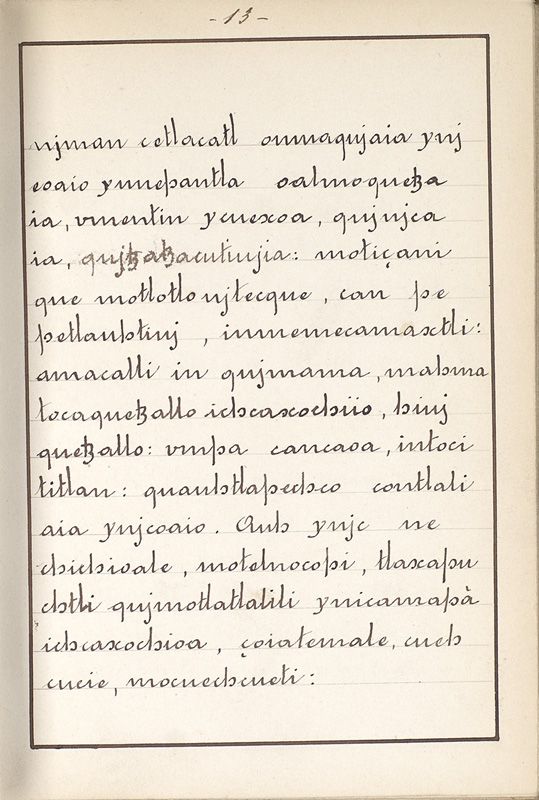 - 13 -
njman cetlacatl onmaqujaia ynj
coaio ynnepantla oalmoquetza
ia, vmentin ycuexoa, qujnjca
ia, qujtzatzacutiujia: motiçani
que motlotlo njtecque, can pe
petlauhtinj, inmemecamaxtli:
amacalli in qujmama, mahma
tocaquetzallo ichcaxochiio, hivj
quetzallo: vmpa cancaoa, intoci
titlan: quauhtlapechco contlali
aia ynjcoaio. Auh ynjc ne
chichioale, motelnocopi, tlaxapu
chtli qujmotlatlalili ynicamapà
ichcaxochioa, çoiatemale, cueh
cueie, mocuechcueti: